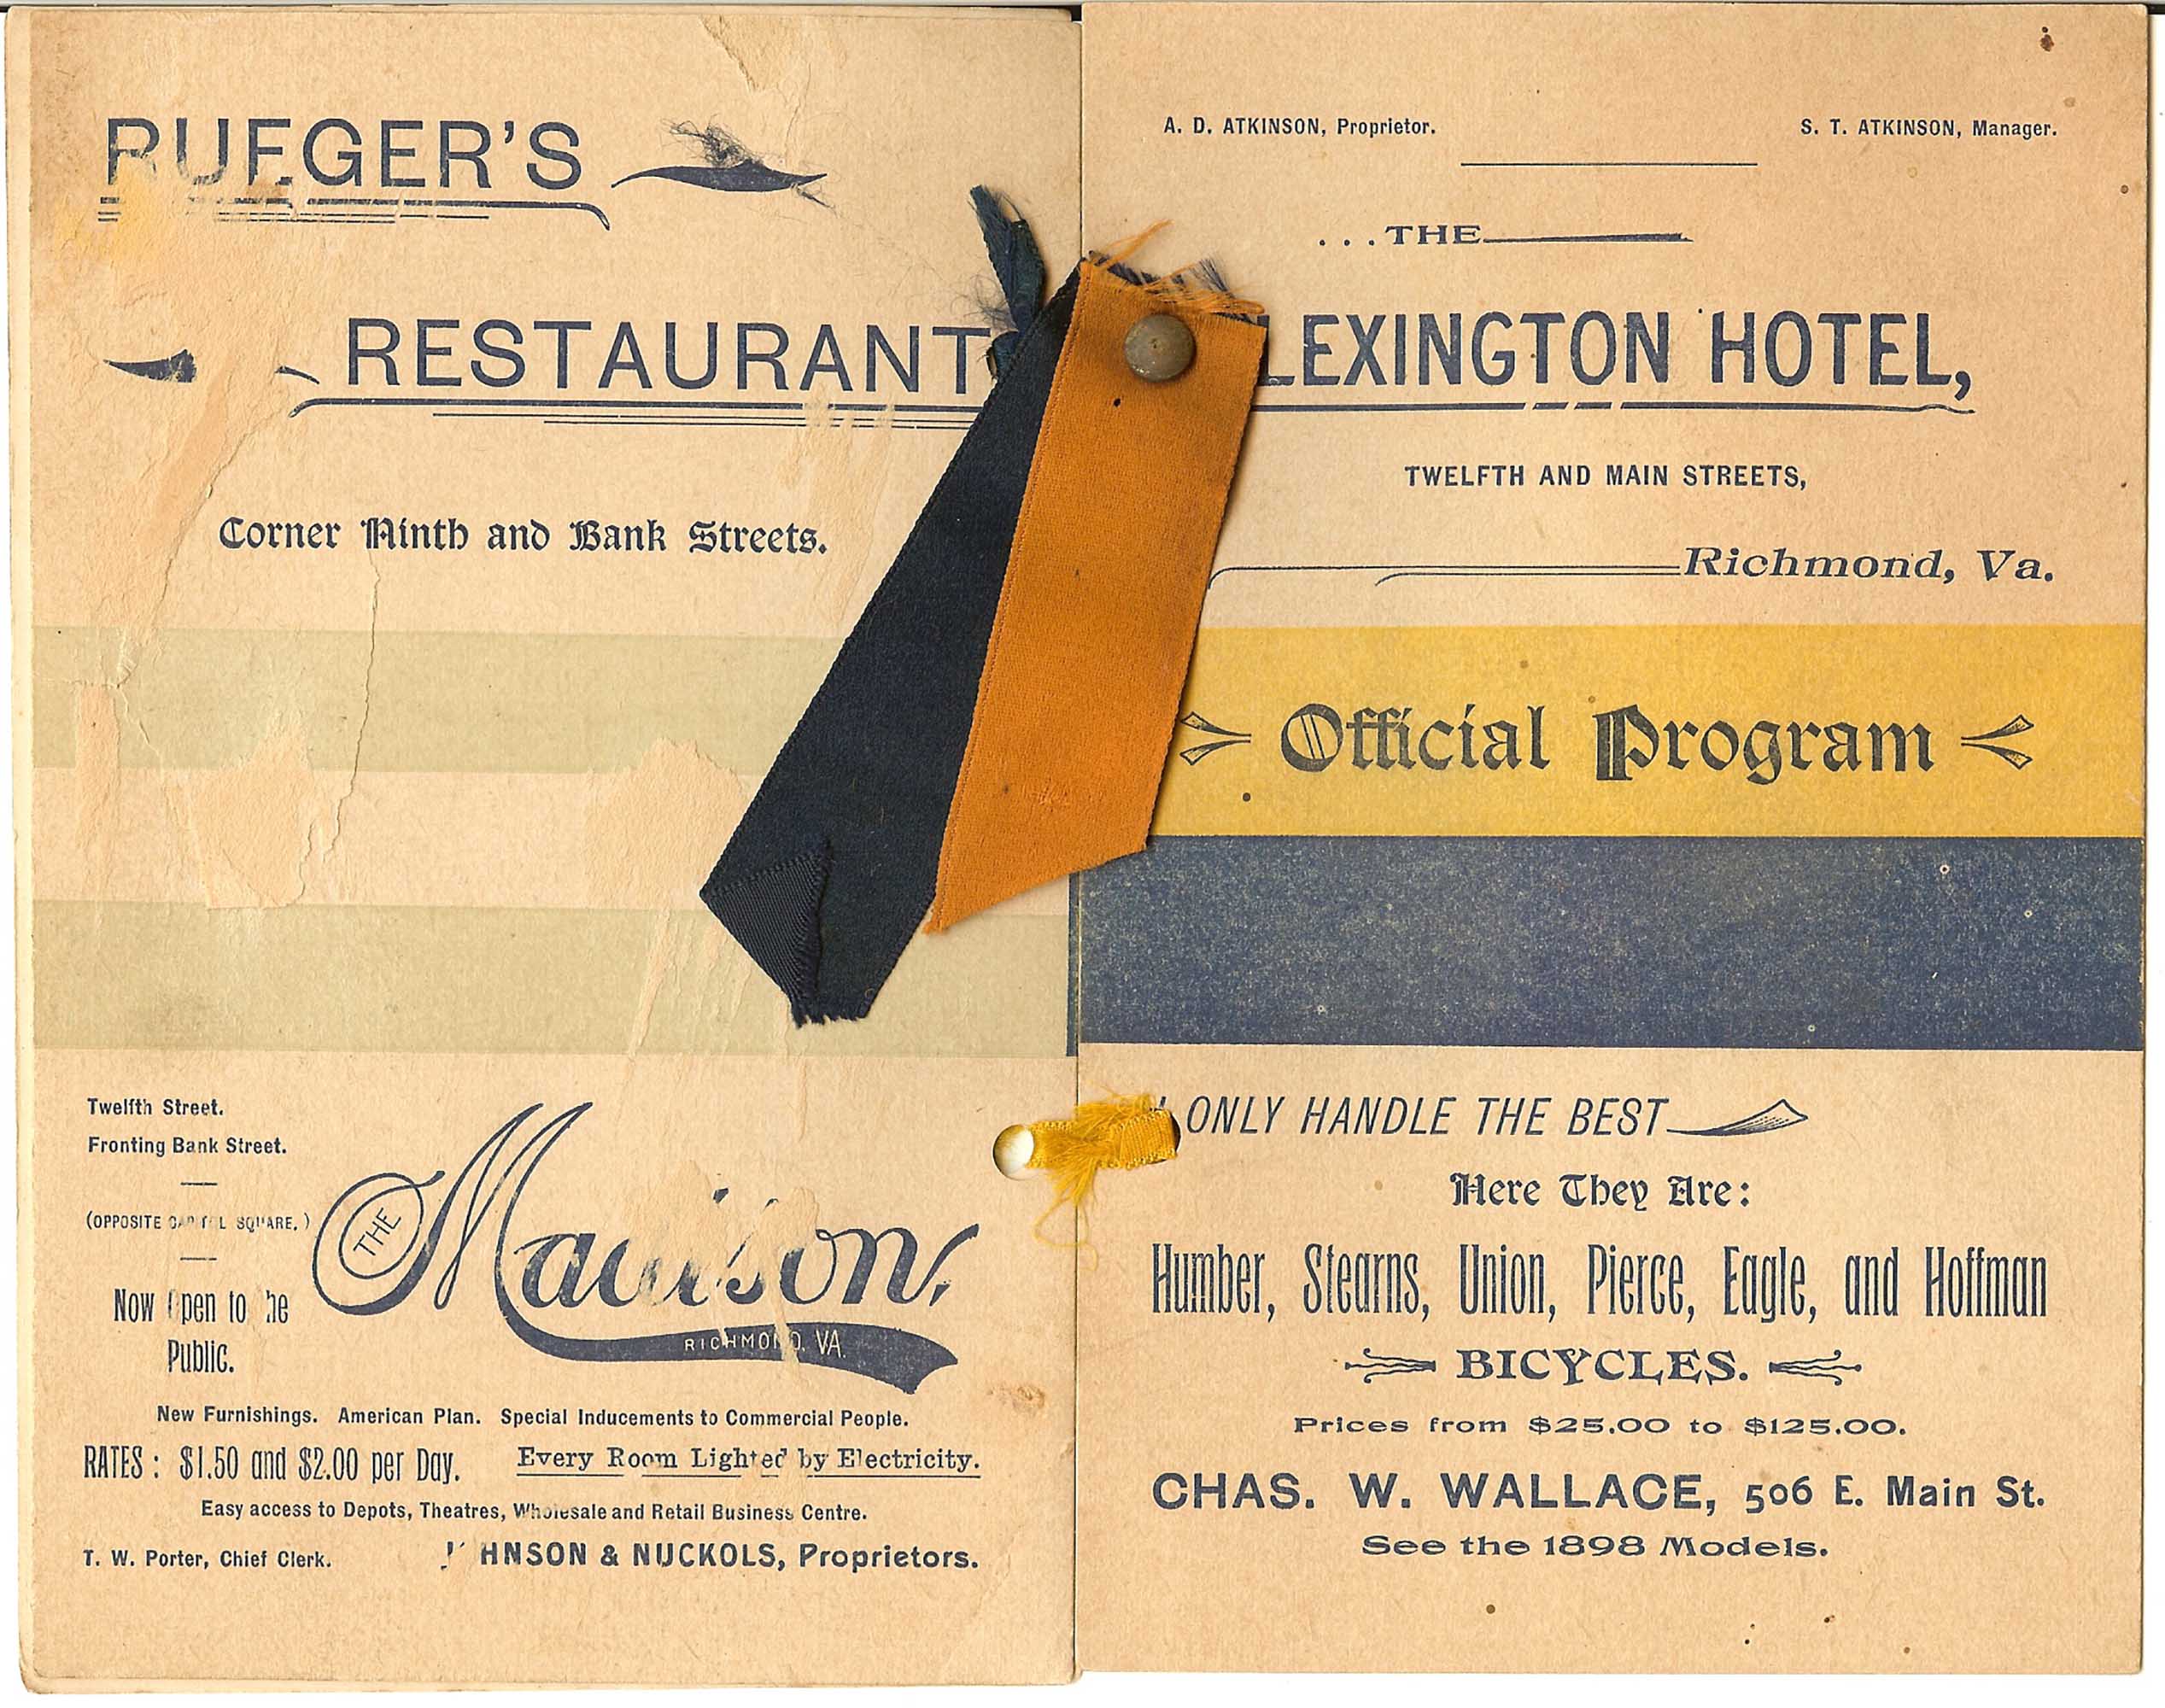 RUEGER'S
RESTAURANT
Corner Ninth and Bank Streets.
Twelfth Street.
Fronting Bank Street.
(OPPOSITE CAPITOL SQUARE.)
Now Open to the
Public.
THE Madison,
RICHMOND, VA.
New Furnishings. American Plan. Special Inducements to Commercial People.
RATES: $1.50 and $2.00 per Day. Every Room Lighted by Electricity.
Easy access to Depots, Theatres, Wholesale and Retail Business Centre.
T. W. Porter, Chief Clerk. JOHNSON & NUCKOLS, Proprietors.
A. D. ATKINSON, Proprietor. S. T. ATKINSON, Manager.
...THE
LEXINGTON HOTEL,
TWELFTH AND MAIN STREETS,
Richmond, Va.
Official Program
I ONLY HANDLE THE BEST
Here They Are:
Humber, Stearns, Union, Pierce, Eagle, and Hoffman
BICYCLES.
Prices from $25.00 to $125.00.
CHAS. W. WALLACE, 506 E. Main St.
See the 1898 Models.